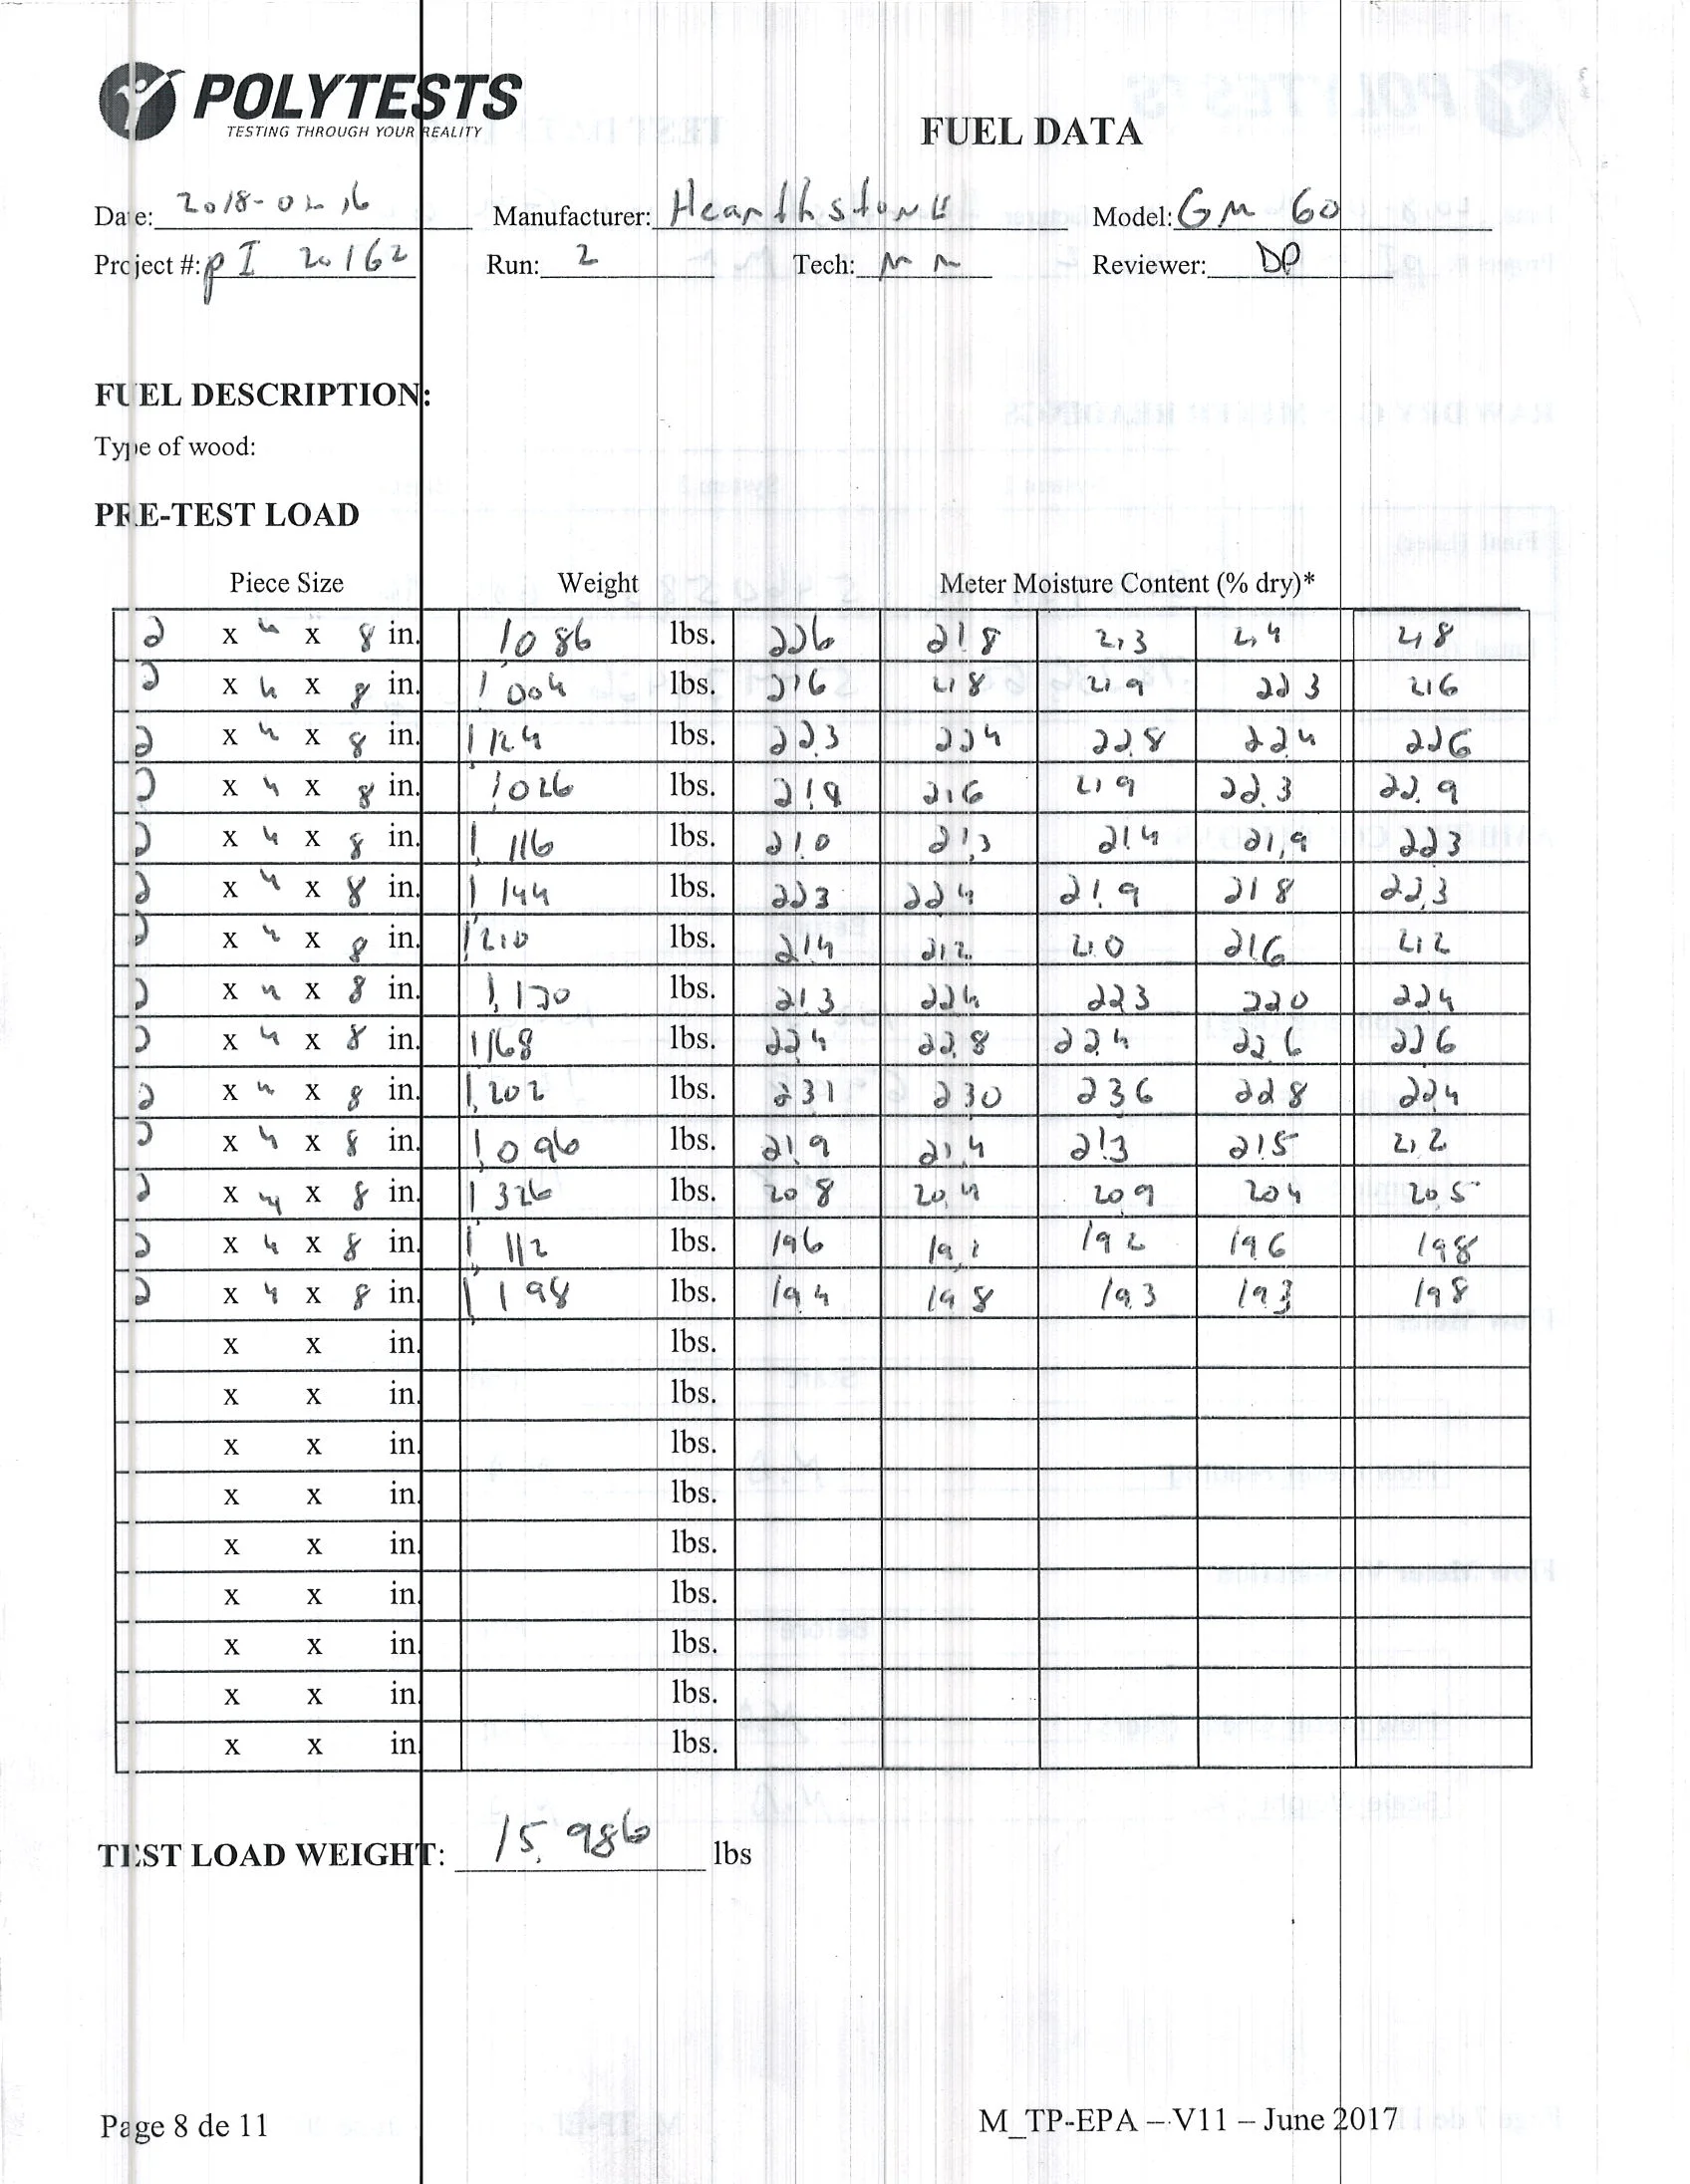 POLYTESTS
TESTING THROUGH YOUR REALITY
FUEL DATA
Date: 2018-02-16 Manufacturer: Hearthstone Model: GM 60
Project #: PI 20162 Run: 2 Tech: MM Reviewer: DP
FUEL DESCRIPTION:
Type of wood:
PRE-TEST LOAD
Piece Size Weight Meter Moisture Content (% dry)*
2 x 4 x 8 in. 1.086 lbs. 22.6 21.8 21.3 21.4 21.8
2 x 4 x 8 in. 1.004 lbs. 21.6 21.8 21.9 22.3 21.6
2 x 4 x 8 in. 1.124 lbs. 22.3 22.4 22.8 22.4 22.6
2 x 4 x 8 in. 1.026 lbs. 21.8 21.6 21.9 22.3 22.9
2 x 4 x 8 in. 1.116 lbs. 21.0 21.3 21.4 21.9 22.3
2 x 4 x 8 in. 1.144 lbs. 22.3 22.4 21.9 21.8 22.3
2 x 4 x 8 in. 1.210 lbs. 21.4 21.2 21.0 21.6 21.2
2 x 4 x 8 in. 1.170 lbs. 21.3 22.4 22.3 22.0 22.4
2 x 4 x 8 in. 1.168 lbs. 22.4 22.8 22.4 22.6 22.6
2 x 4 x 8 in. 1.202 lbs. 23.1 23.0 23.6 22.8 22.4
2 x 4 x 8 in. 1.096 lbs. 21.9 21.4 21.3 21.5 21.2
2 x 4 x 8 in. 1.326 lbs. 20.8 20.4 20.9 20.4 20.5
2 x 4 x 8 in. 1.112 lbs. 19.6 19.2 19.6 19.8
2 x 4 x 8 in. 1.198 lbs. 19.4 19.8 19.3 19.3 19.8
x x in. lbs.
x x in. lbs.
x x in. lbs.
x x in. lbs.
x x in. lbs.
x x in. lbs.
x x in. lbs.
x x in. lbs.
x x in. lbs.
TEST LOAD WEIGHT: 15.986 lbs
Page 8 de 11 M_TP-EPA – V11 – June 2017